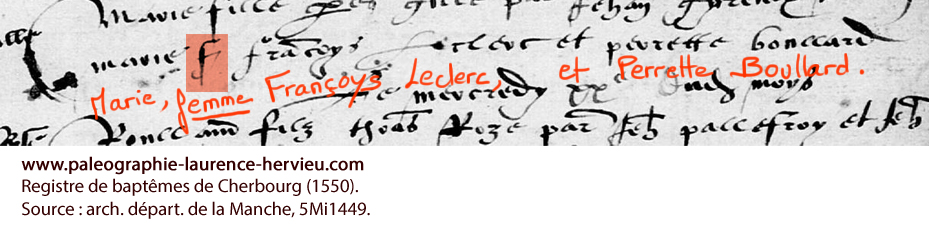 Marie fille
marie f françoys leclerc et perrette boullard
Marie, femme Françoys Leclerc, et Perrette Boullard.
le mercredy xxe dud moys
Roulland filz thõas Roze par Jeh pallefroy et Jeh
www.paleographie-laurence-hervieu.com
Registre de baptêmes de Cherbourg (1550).
Source : arch. départ. de la Manche, 5Mi1449.